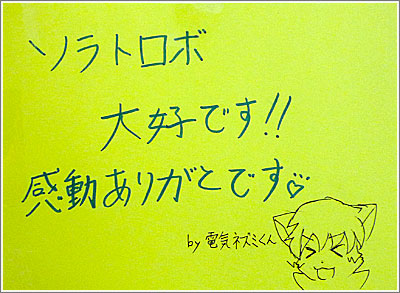 ソラトロボ
大好です!!
感動ありがとです♡
by 電気ネズミくん